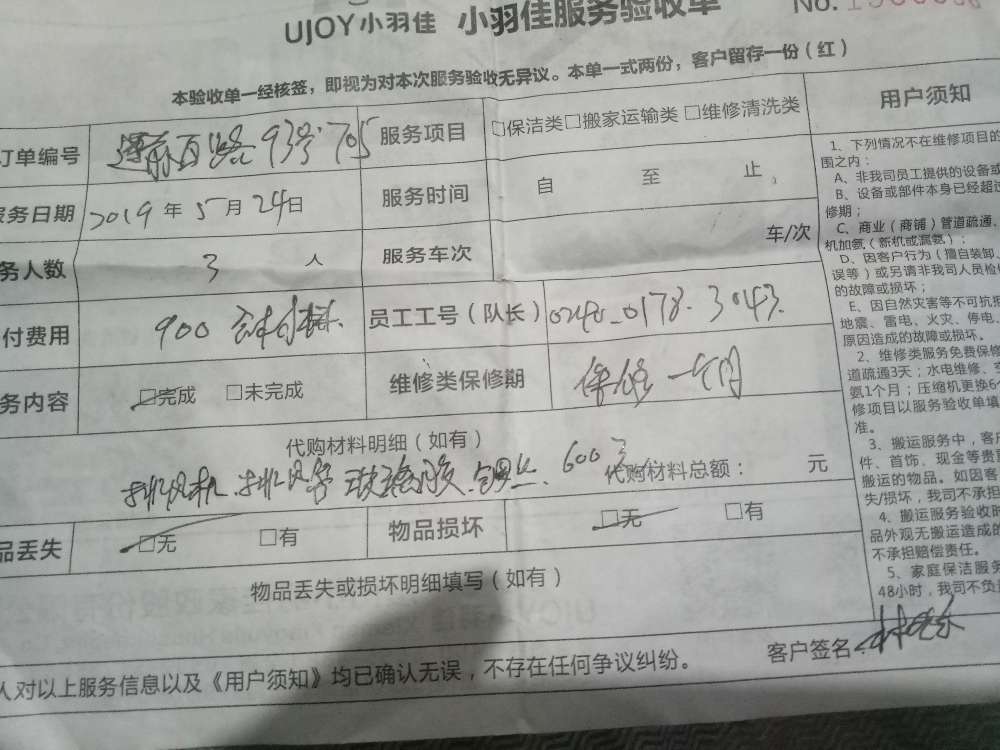 UJOY小羽佳 小羽佳服务验收单 No.
本验收单一经核签，即视为对本次服务验收无异议。本单一式两份，客户留存一份（红）
订单编号 93号705 服务项目 □保洁类□搬家运输类 □维修清洗类
服务日期 2019年5月24日 服务时间 自 至 止
务人数 3 人 服务车次 车/次
付费用 900 员工工号（队长） 0248-0178.3043.
务内容 □完成 □未完成 维修类保修期 保修一个月
代购材料明细（如有）
排风机.排风管 玻璃胶 600元 代购材料总额： 元
品丢失 □无 □有 物品损坏 □无 □有
物品丢失或损坏明细填写（如有）
人对以上服务信息以及《用户须知》均已确认无误，不存在任何争议纠纷。 客户签名：
用户须知
1、下列情况不在维修项目的
围之内：
A、非我司员工提供的设备或
B、设备或部件本身已经超过
修期；
C、商业（商铺）管道疏通、
机加氨（新机或漏氨）；
D、因客户行为（擅自装卸、
误等）或另请非我司人员检修
的故障或损坏；
E、因自然灾害等不可抗拒
地震、雷电、火灾、停电、
原因造成的故障或损坏。
2、维修类服务免费保修
道疏通3天；水电维修、空
氨1个月；压缩机更换6个
修项目以服务验收单填
准。
3、搬运服务中，客户
件、首饰、现金等贵重
搬运的物品。如因客
失/损坏，我司不承担
4、搬运服务验收时
品外观无搬运造成的
不承担赔偿责任。
5、家庭保洁服务
48小时，我司不负